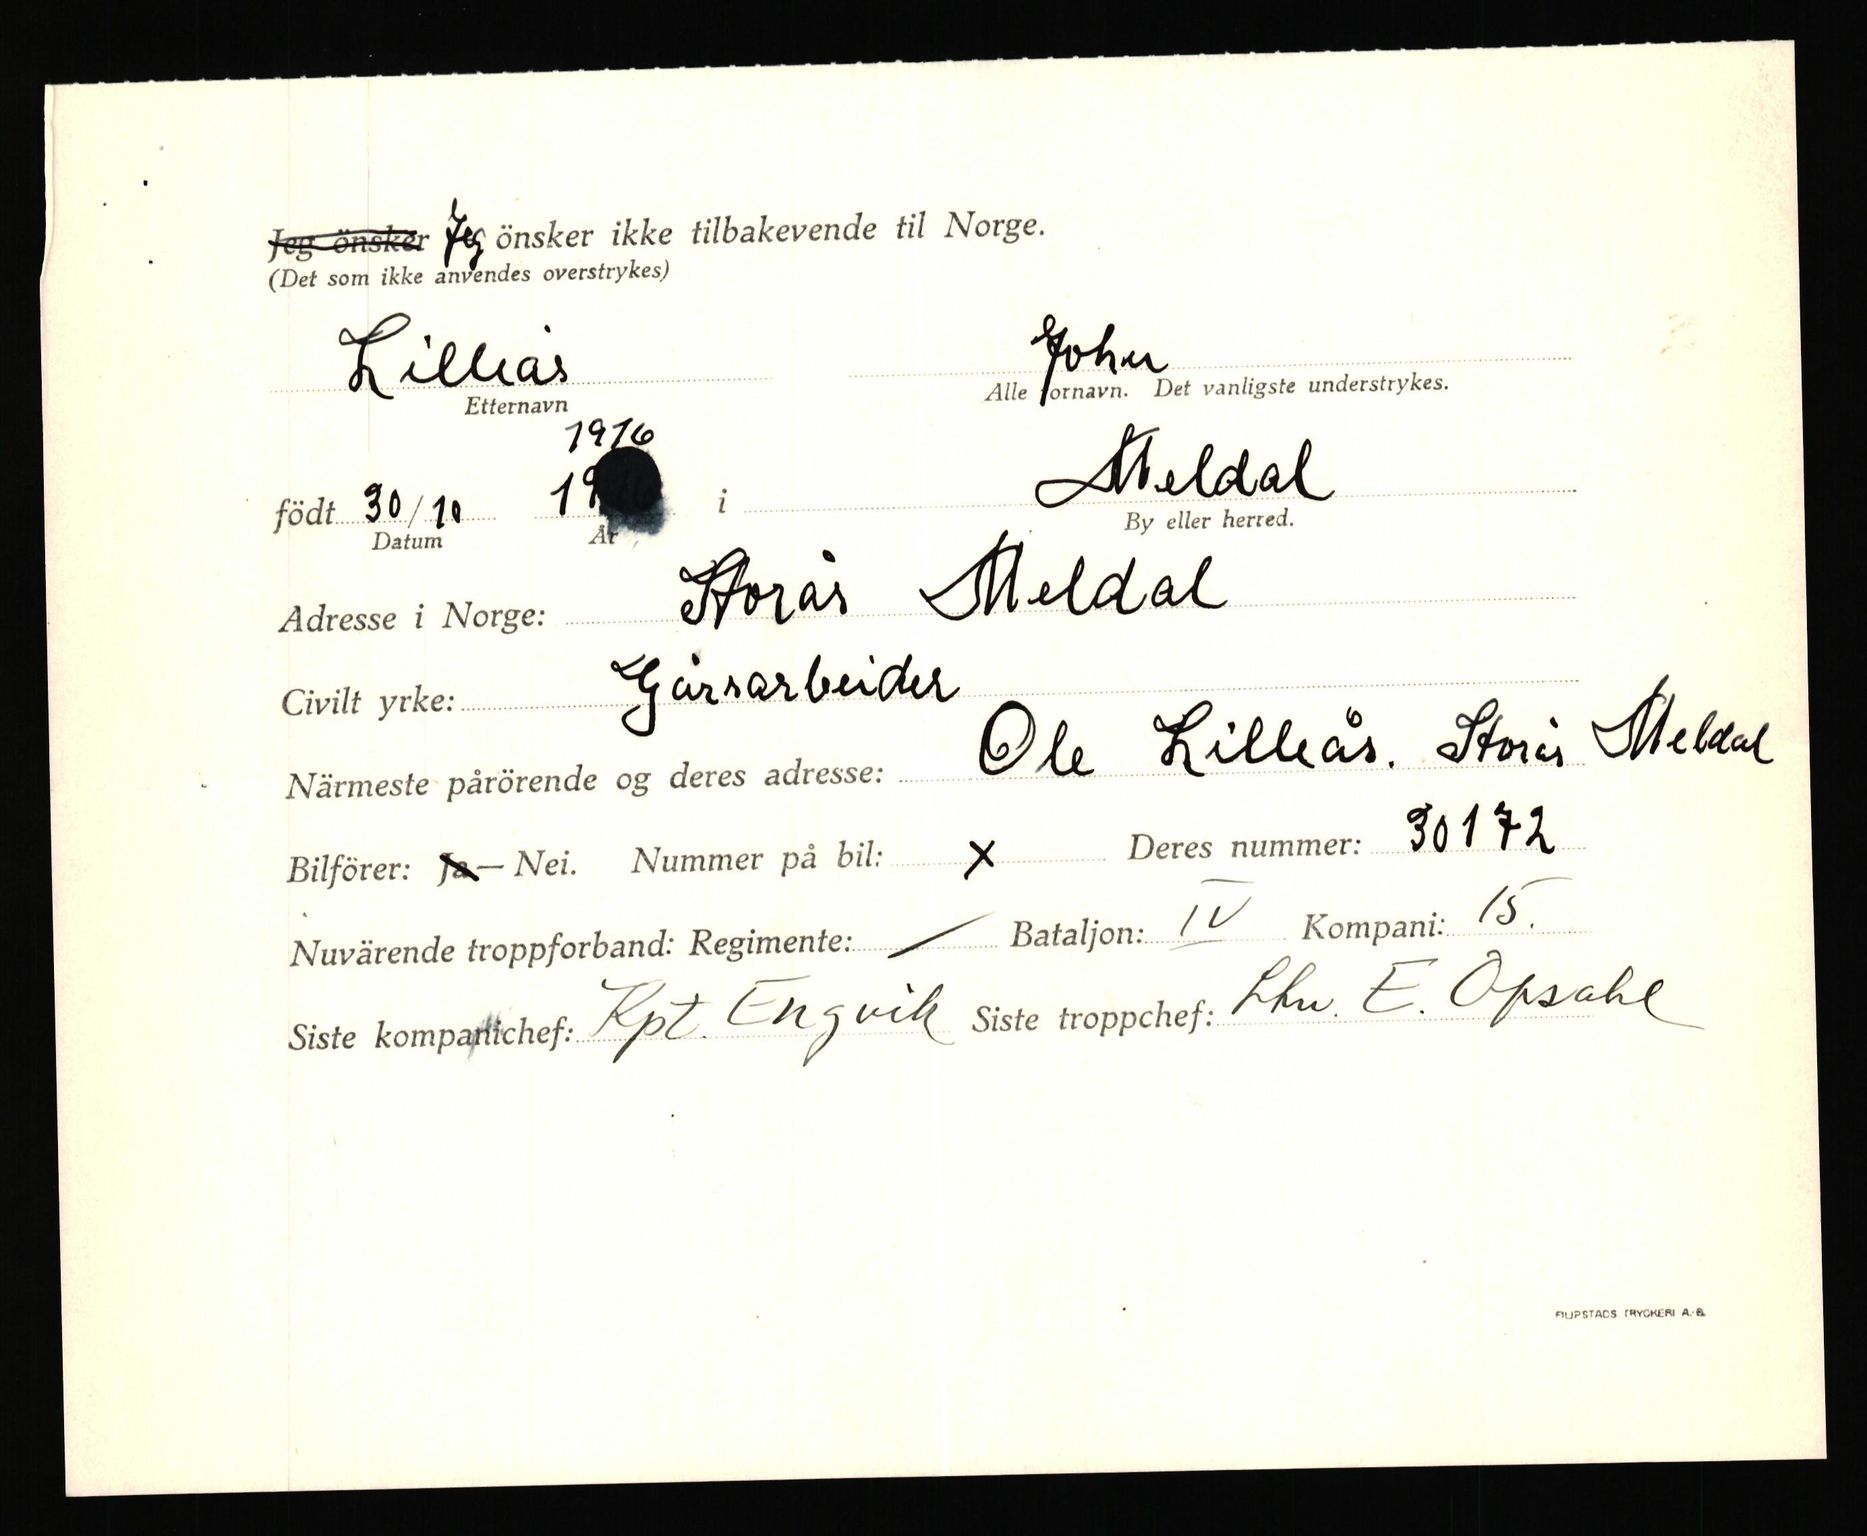 Jeg önsker Jeg önsker ikke tilbakevende til Norge.
(Det som ikke anvendes overstrykes)
Lilleås John
Etternavn Alle fornavn. Det vanligste understrykes.
1916
födt 30/10 19 i Meldal
Datum År By eller herred.
Adresse i Norge: Storås Meldal
Civilt yrke: Gårsarbeider
Närmeste pårörende og deres adresse: Ole Lilleås. Storås Meldal
Bilförer: Ja — Nei. Nummer på bil: x Deres nummer: 30172
Nuvärende troppforband: Regimente: / Bataljon: IV Kompani: 15.
Siste kompanichef: Kpt. Engvik Siste troppchef: E. Opsahl
FILIPSTADS TRYCKERI A.-B.